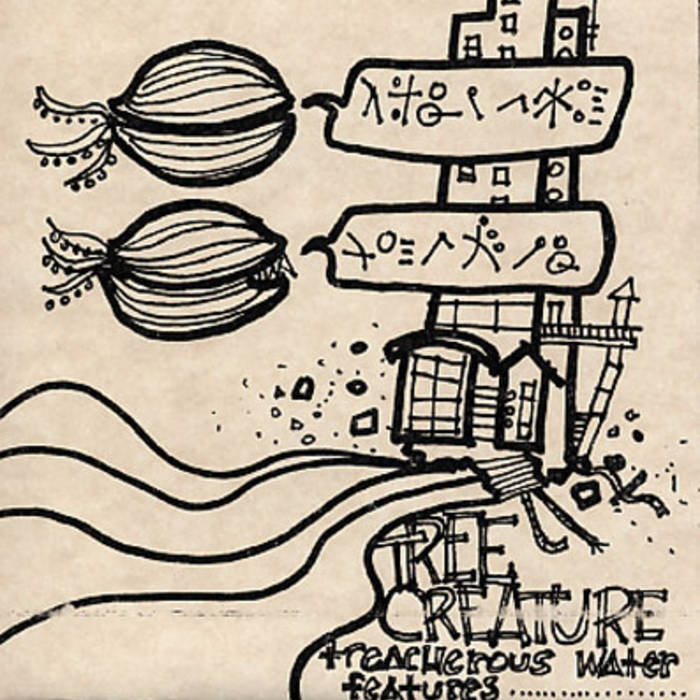 TREE
CREATURE
treacherous water
features